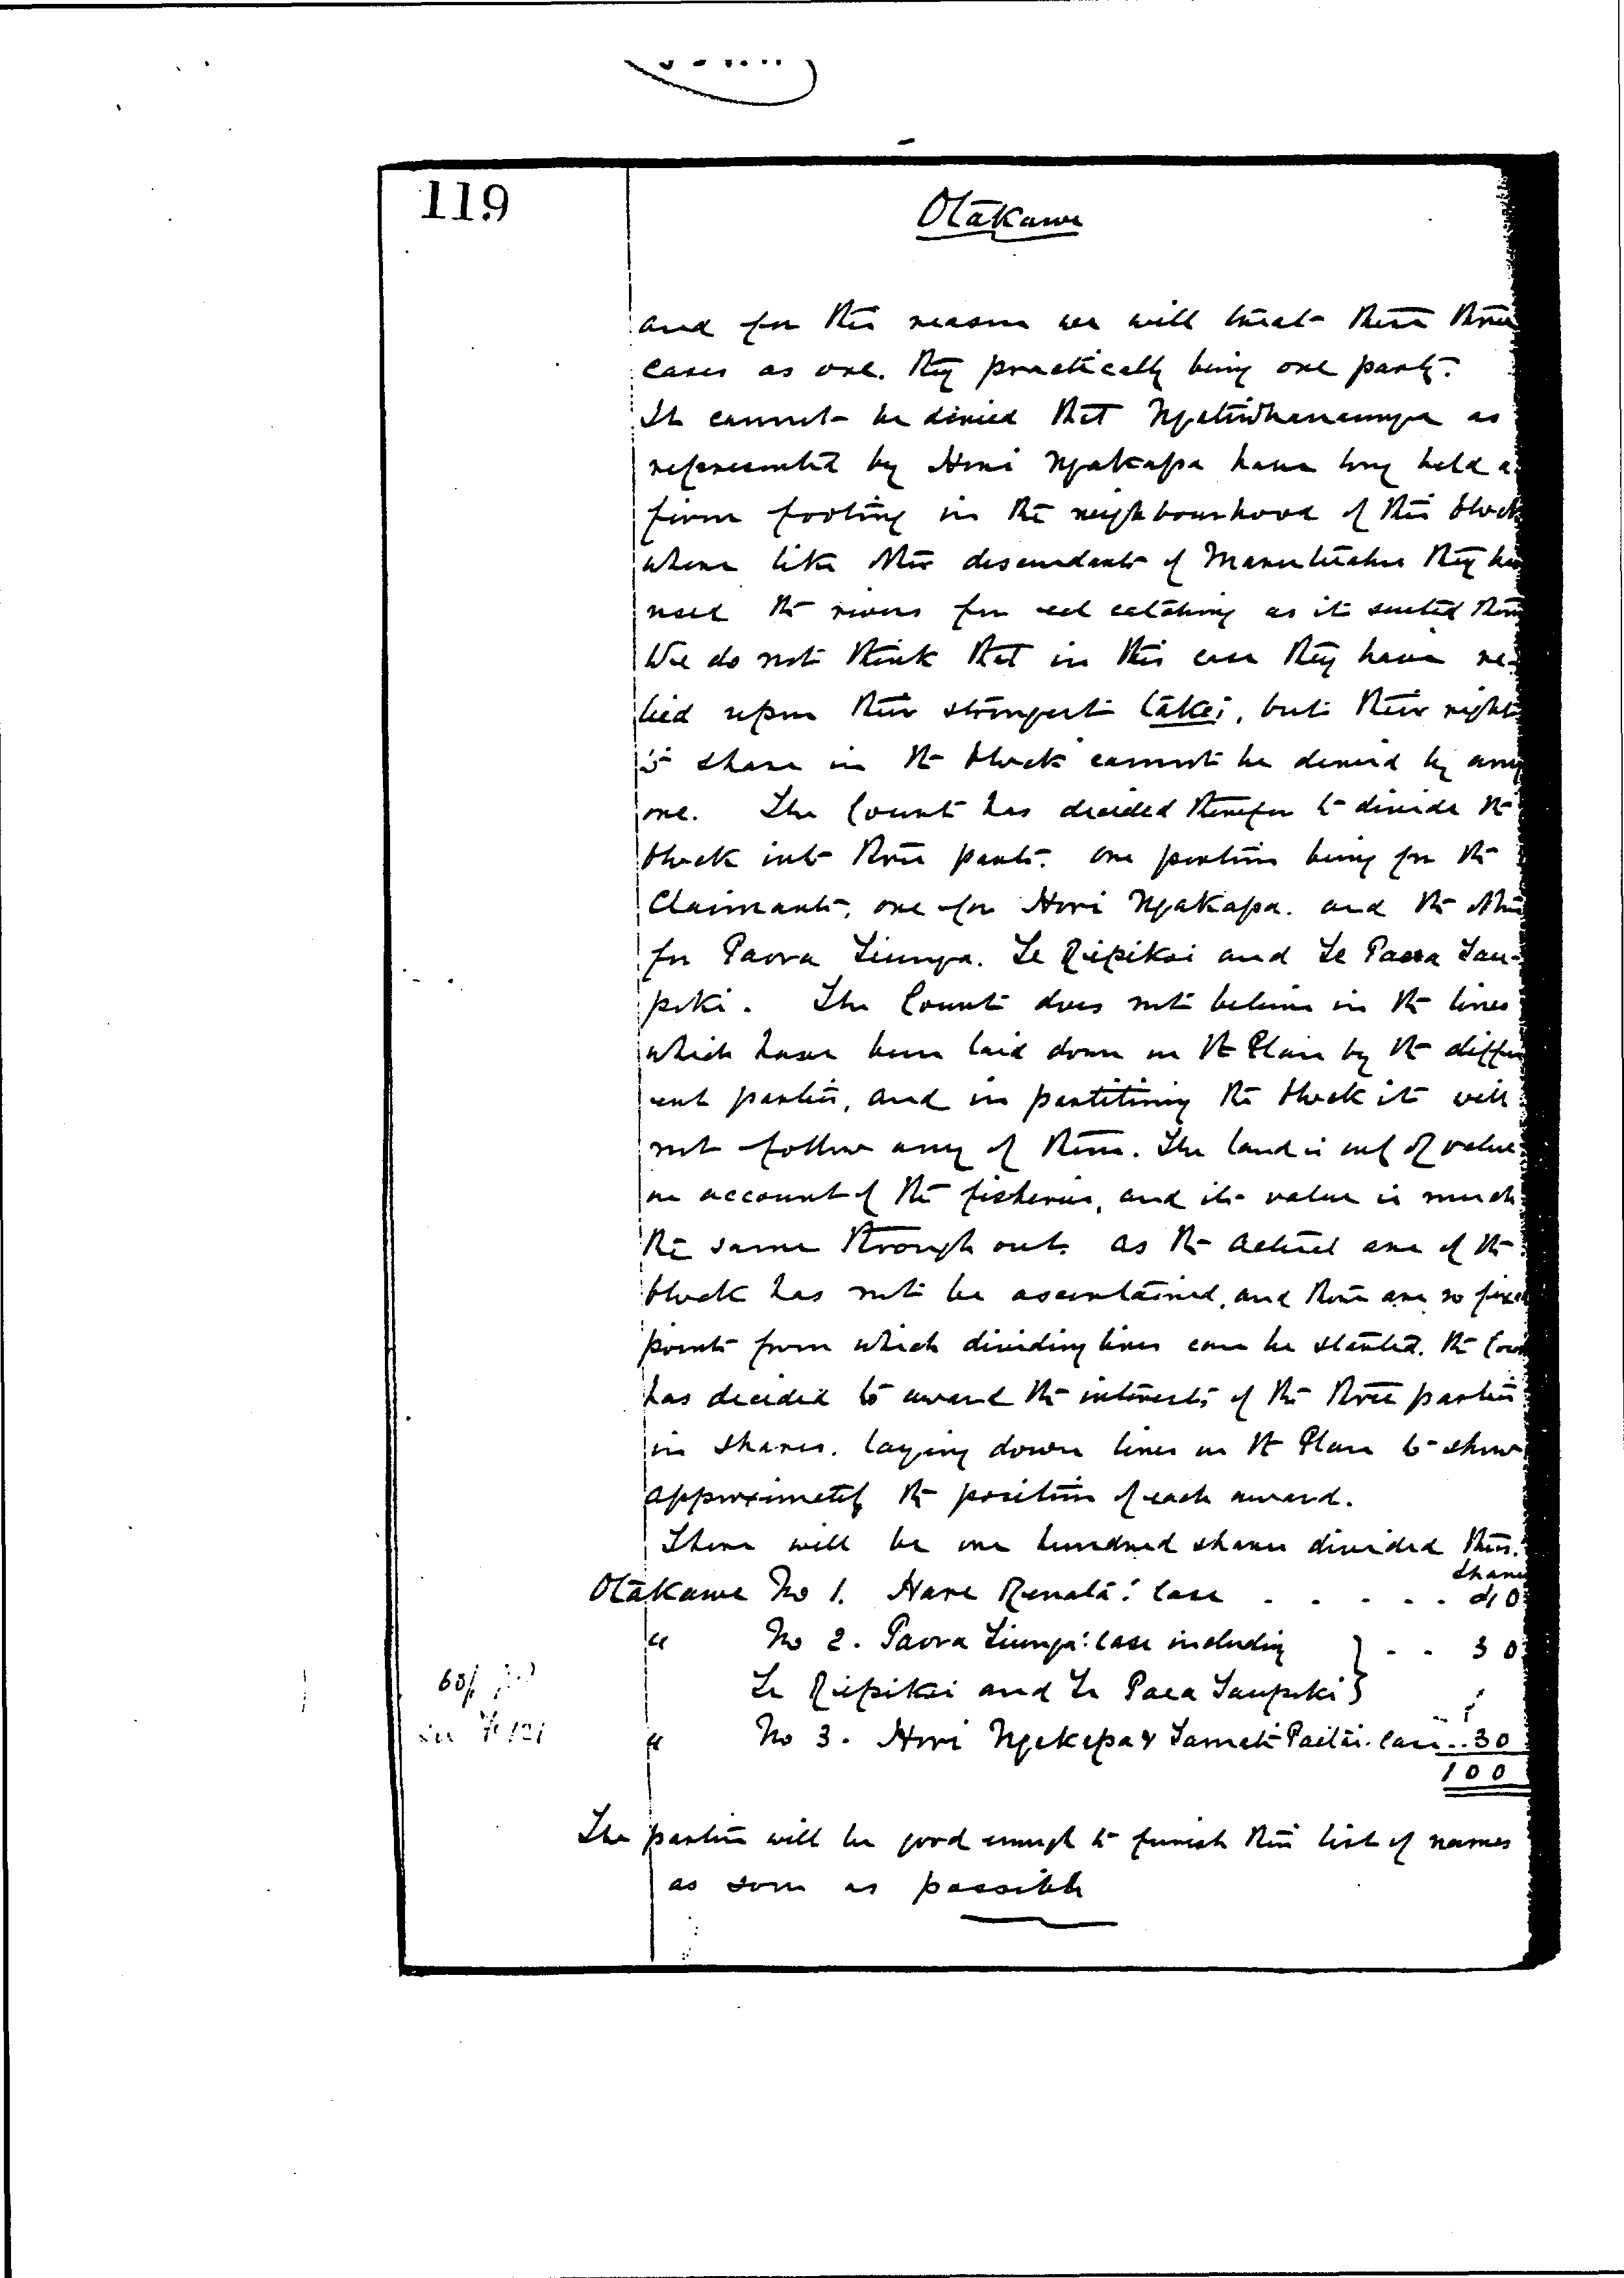 119
Otakawe
and for this reason we will treat these three
cases as one. They practically being one party.
It cannot be denied that Ngatiwhanaunga as
represented by Hori Ngakapa have long held a
firm footing in the neighbourhood of this block
where like other descendants of they
used the rivers for eel catching as it suited them
We do not think that in this case they have re-
lied upon their strongest take, but their right
to share in the block cannot be denied by any
one. The Court has decided therefor to divide the
block into three parts. one portion being for the
Claimants, one for Hori Ngakapa. and the other
for Paora Tiunga. Te Ripikoi and Te Paea Tau-
piki. The Court does not believe in the lines
which have been laid down on the Plan by the differ
ent parties, and in partitioning the block it will
not follow any of them. The land is only of value
on account of the fisheries, and its value is much
the same through out. as the actual area of the
block has not be ascertained, and there are no fixed
points from which dividing lines can be started. the
has decided to award the interests of the three parties
in shares. laying down lines on the Plan to show
approximately the position of each award.
There will be one hundred shares divided thus.
shares
Otakawe No 1. Hare Renata's Case . . . . . 40
" No 2. Paora Tiunga's Case including } . . 30
Te Ripikoi and Te Paea Taupiki }
" No 3. Hori Ngakapa & Case .. 30
100
The parties will be good enough to furnish their list of names
as soon as possible